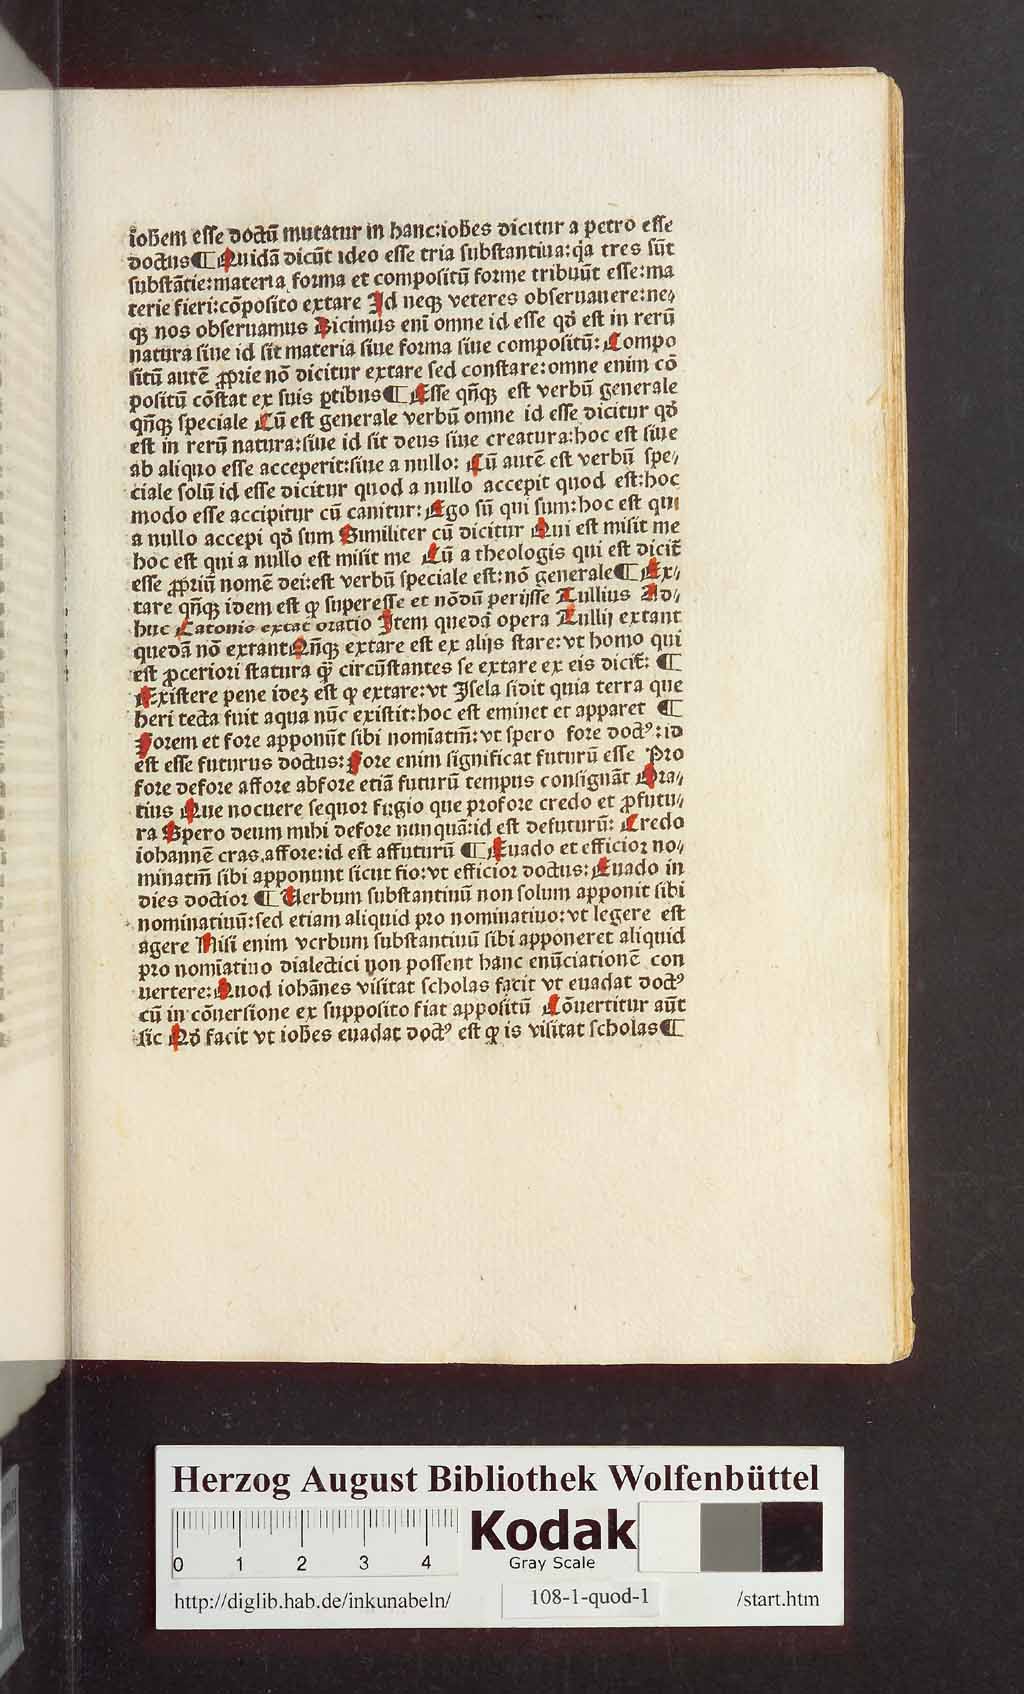 iohem esse doctū mutatur in hanc:iohes dicitur a petro esse
doctus¶ Quidā dicūt ideo esse tria substantiua:q̇a tres sūt
substātie:materia forma et compositū forme tribuūt esse:ma
terie fieri:cōposito extare Id neqꝫ veteres obseruauere:ne⸗
qꝫ nos obseruamus Dicimus enī omne id esse qḋ est in rerū
natura siue id sit materia siue forma siue compositū: Compo
sitū autē ꝓprie nō dicitur extare sed constare:omne enim cō
positū cōstat ex suis ꝑtibus¶ Esse qn̄qꝫ est verbū generale
qn̄qꝫ speciale Cū est generale verbū omne id esse dicitur qḋ
est in rerū natura:siue id sit deus siue creatura:hoc est siue
ab aliquo esse acceperit:siue a nullo: Cū autē est verbū spe⸗
ciale solū id esse dicitur quod a nullo accepit quod est:hoc
modo esse accipitur cū canitur: Ego sū qui sum:hoc est qui
a nullo accepi qḋ sum Similiter cū dicitur Qui est misit me
hoc est qui a nullo est misit me Cū a theologis qui est dicit̄
esse ꝓpriū nomē dei:est verbū speciale est:nō generale¶ Ex⸗
tare qn̄qꝫ idem est ꝙ superesse et nōdū perijsse Tullius Ad⸗
huc Catonis extat oratio Item quedā opera Tullij extant
quedā nō extrant Qn̄qꝫ extare est ex alijs stare:vt homo qui
est ꝓceriori statura q̄ꝫ circūstantes se extare ex eis dicit̄: ¶
Existere pene ideꝫ est ꝙ extare:vt Isela sidit quia terra que
heri tecta fuit aqua nūc existit:hoc est eminet et apparet ¶
Forem et fore apponūt sibi nomīatm̄:vt spero fore doctꝰ:id
est esse futurus doctus: Fore enim significat futurū esse Pro
fore defore affore abfore etiā futurū tempus consignāt Ora⸗
tius Que nocuere sequor fugio que profore credo et ꝓfutu⸗
ra Spero deum mihi defore nunquā:id est defuturū: Credo
iohannē cras affore:id est affuturū ¶ Euado et efficior no⸗
minatm̄ sibi apponunt sicut fio:vt efficior doctus: Euado in
dies doctior ¶ Uerbum substantiuū non solum apponit sibi
nominatiuū:sed etiam aliquid pro nominatiuo:vt legere est
agere Nisi enim verbum substantiuū sibi apponeret aliquid
pro nomīatiuo dialectici non possent hanc enūciationē con
uertere: Quod iohānes visitat scholas facit vt euadat doctꝰ
cū in cōuersione ex supposito fiat appositū Cōuertitur aūt
sic Qḋ facit vt iohes euadat doctꝰ est ꝙ is visitat scholas¶
Herzog August Bibliothek Wolfenbüttel
0 1 2 3 4
Kodak
Gray Scale
http://diglib.hab.de/inkunabeln/ 108-1-quod-1 /start.htm